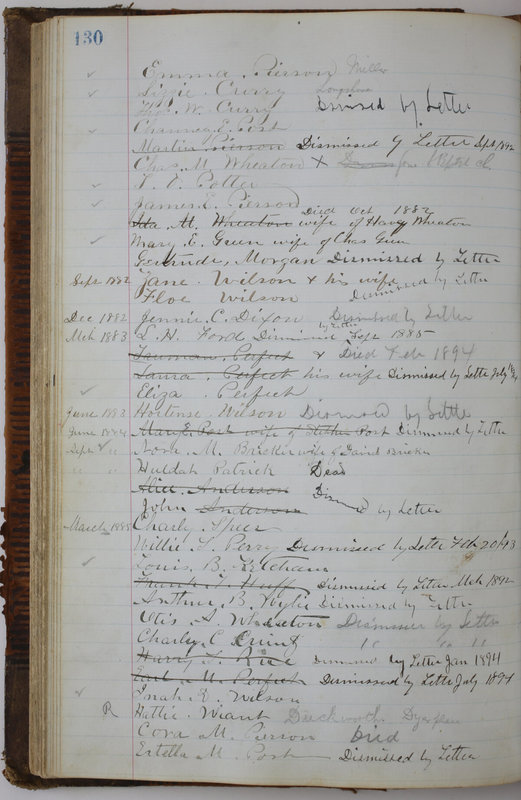 130
Emma Pierson Miller
Lizzie Curry
W. Curry Dismissed by Letter
Chauncey E. Post
Martin Pierson Dismissed by Letter Sept 1892
Chas. M. Wheaton +
T. E. Potter
James L. Pierson
Died Oct 1882
Ida M. Wheaton wife of Harvy Wheaton
Mary E. Green wife of Chas Green
Gertrude Morgan Dismissed by Letter
Sept 1882 Jane Wilson & his wife
Floe Wilson Dismissed by Letter
Dec 1882 Jennie C. Dixon Dismissed by Letter
Mch 1883 L. H. Ford Dismissed by Letter Sept 1885
Truman Perfect & Died Feb 1894
Laura Perfect his wife Dismissed by Letter July
Eliza Perfect
June 1883 Hortense Wilson Dismissed by Letter
June 1884 Mary E. Post wife of Post Dismissed by Letter
Sept " Nora M. Bricker wife of David Bricker
" " Huldah Patrick Dead
Alice Anderson
John Anderson Dismissed by Letter
March 1885 Charly Speer
Willie S. Perry Dismissed by Letter Feb 20/93
Louis B. Ketcham
Frank T. Huff Dismissed by Letter Mch 1892
Arthur B. Wylie Dismissed by Letter
Otis A. Wheaton Dismissed by Letter
Charly C. " " "
Harry L. Rice Dismissed by Letter Jan 1894
Earl M. Perfect Dismissed by Letter July 1894
Inah R. Wilson
R Hattie Wiant
Cora M. Pierson Died
Estella M. Post Dismissed by Letter